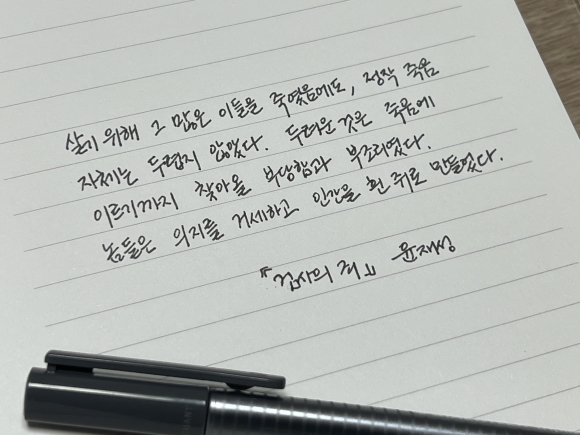 살기 위해 그 많은 이들을 죽였음에도, 정작 죽음
자체는 두렵지 않았다. 두려운 것은 죽음에
이르기까지 찾아올 부당함과 부조리였다.
놈들은 의지를 거세하고 인간을 흰 쥐로 만들었다.
『검사의 죄』 윤재성